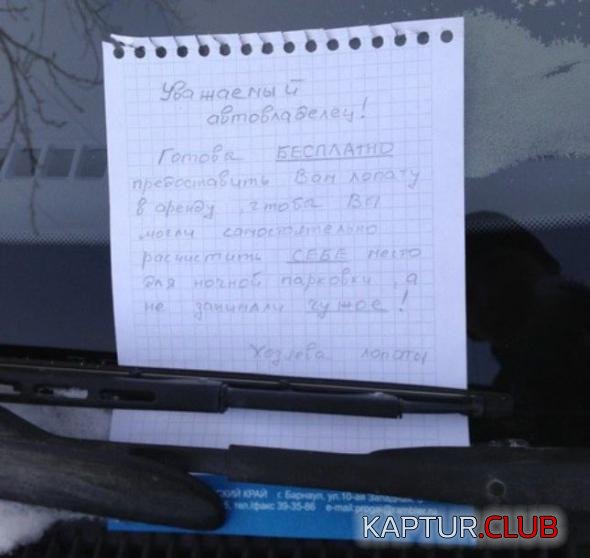 Уважаемый
автовладелец!
Готова БЕСПЛАТНО
предоставить Вам лопату
в аренду, чтобы Вы
могли самостоятельно
расчистить СЕБЕ место
для ночной парковки, а
не занимали чужое!
Хозяева лопаты
СКИЙ КРАЙ г. Барнаул, ул.10-ая Западная,
5, тел./факс 39-35-66 e-mail:
KAPTUR.CLUB